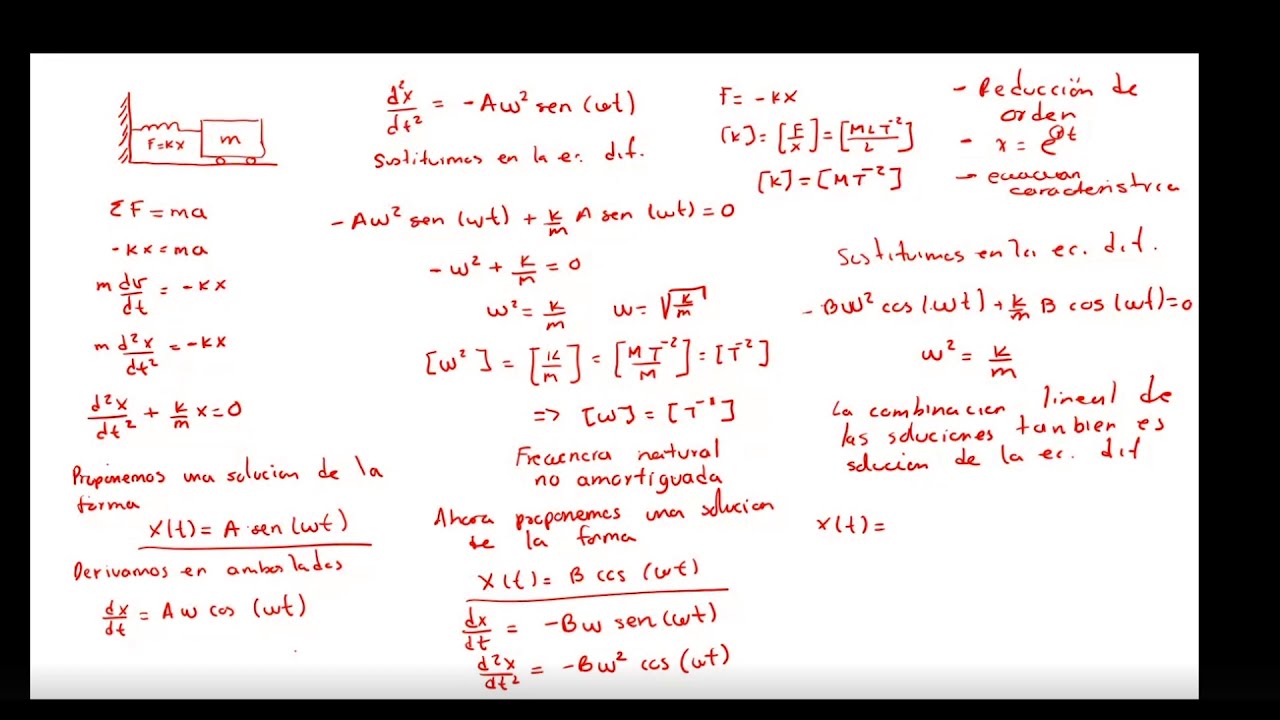 F=kx
m
ΣF = ma
-kx = ma
m dv/dt = -kx
m d²x/dt² = -kx
d²x/dt² + k/m x = 0
Proponemos una solucion de la
forma
x(t) = A sen(ωt)
Derivamos en ambos lados
dx/dt = Aω cos (ωt)
d²x/dt² = -Aω² sen(ωt)
Sustituimos en la ec. dif.
-Aω² sen(ωt) + k/m A sen(ωt) = 0
-ω² + k/m = 0
ω² = k/m ω = √k/m
[ω²] = [k/m] = [MT⁻²/M] = [T⁻²]
=> [ω] = [T⁻¹]
Frecuencia natural
no amortiguada
Ahora proponemos una solucion
de la forma
x(t) = B cos (ωt)
dx/dt = -Bω sen(ωt)
d²x/dt² = -Bω² cos(ωt)
F = -kx
[k] = [F/x] = [MLT⁻²/L]
[k] = [MT⁻²]
- Reducción de
orden
- x = e^
- ecuacion
caracteristica
Sustituimos en la ec. dif.
-Bω² cos(ωt) + k/m B cos(ωt) = 0
ω² = k/m
La combinacion lineal de
las soluciones tanbien es
solucion de la ec. dif
x(t) =